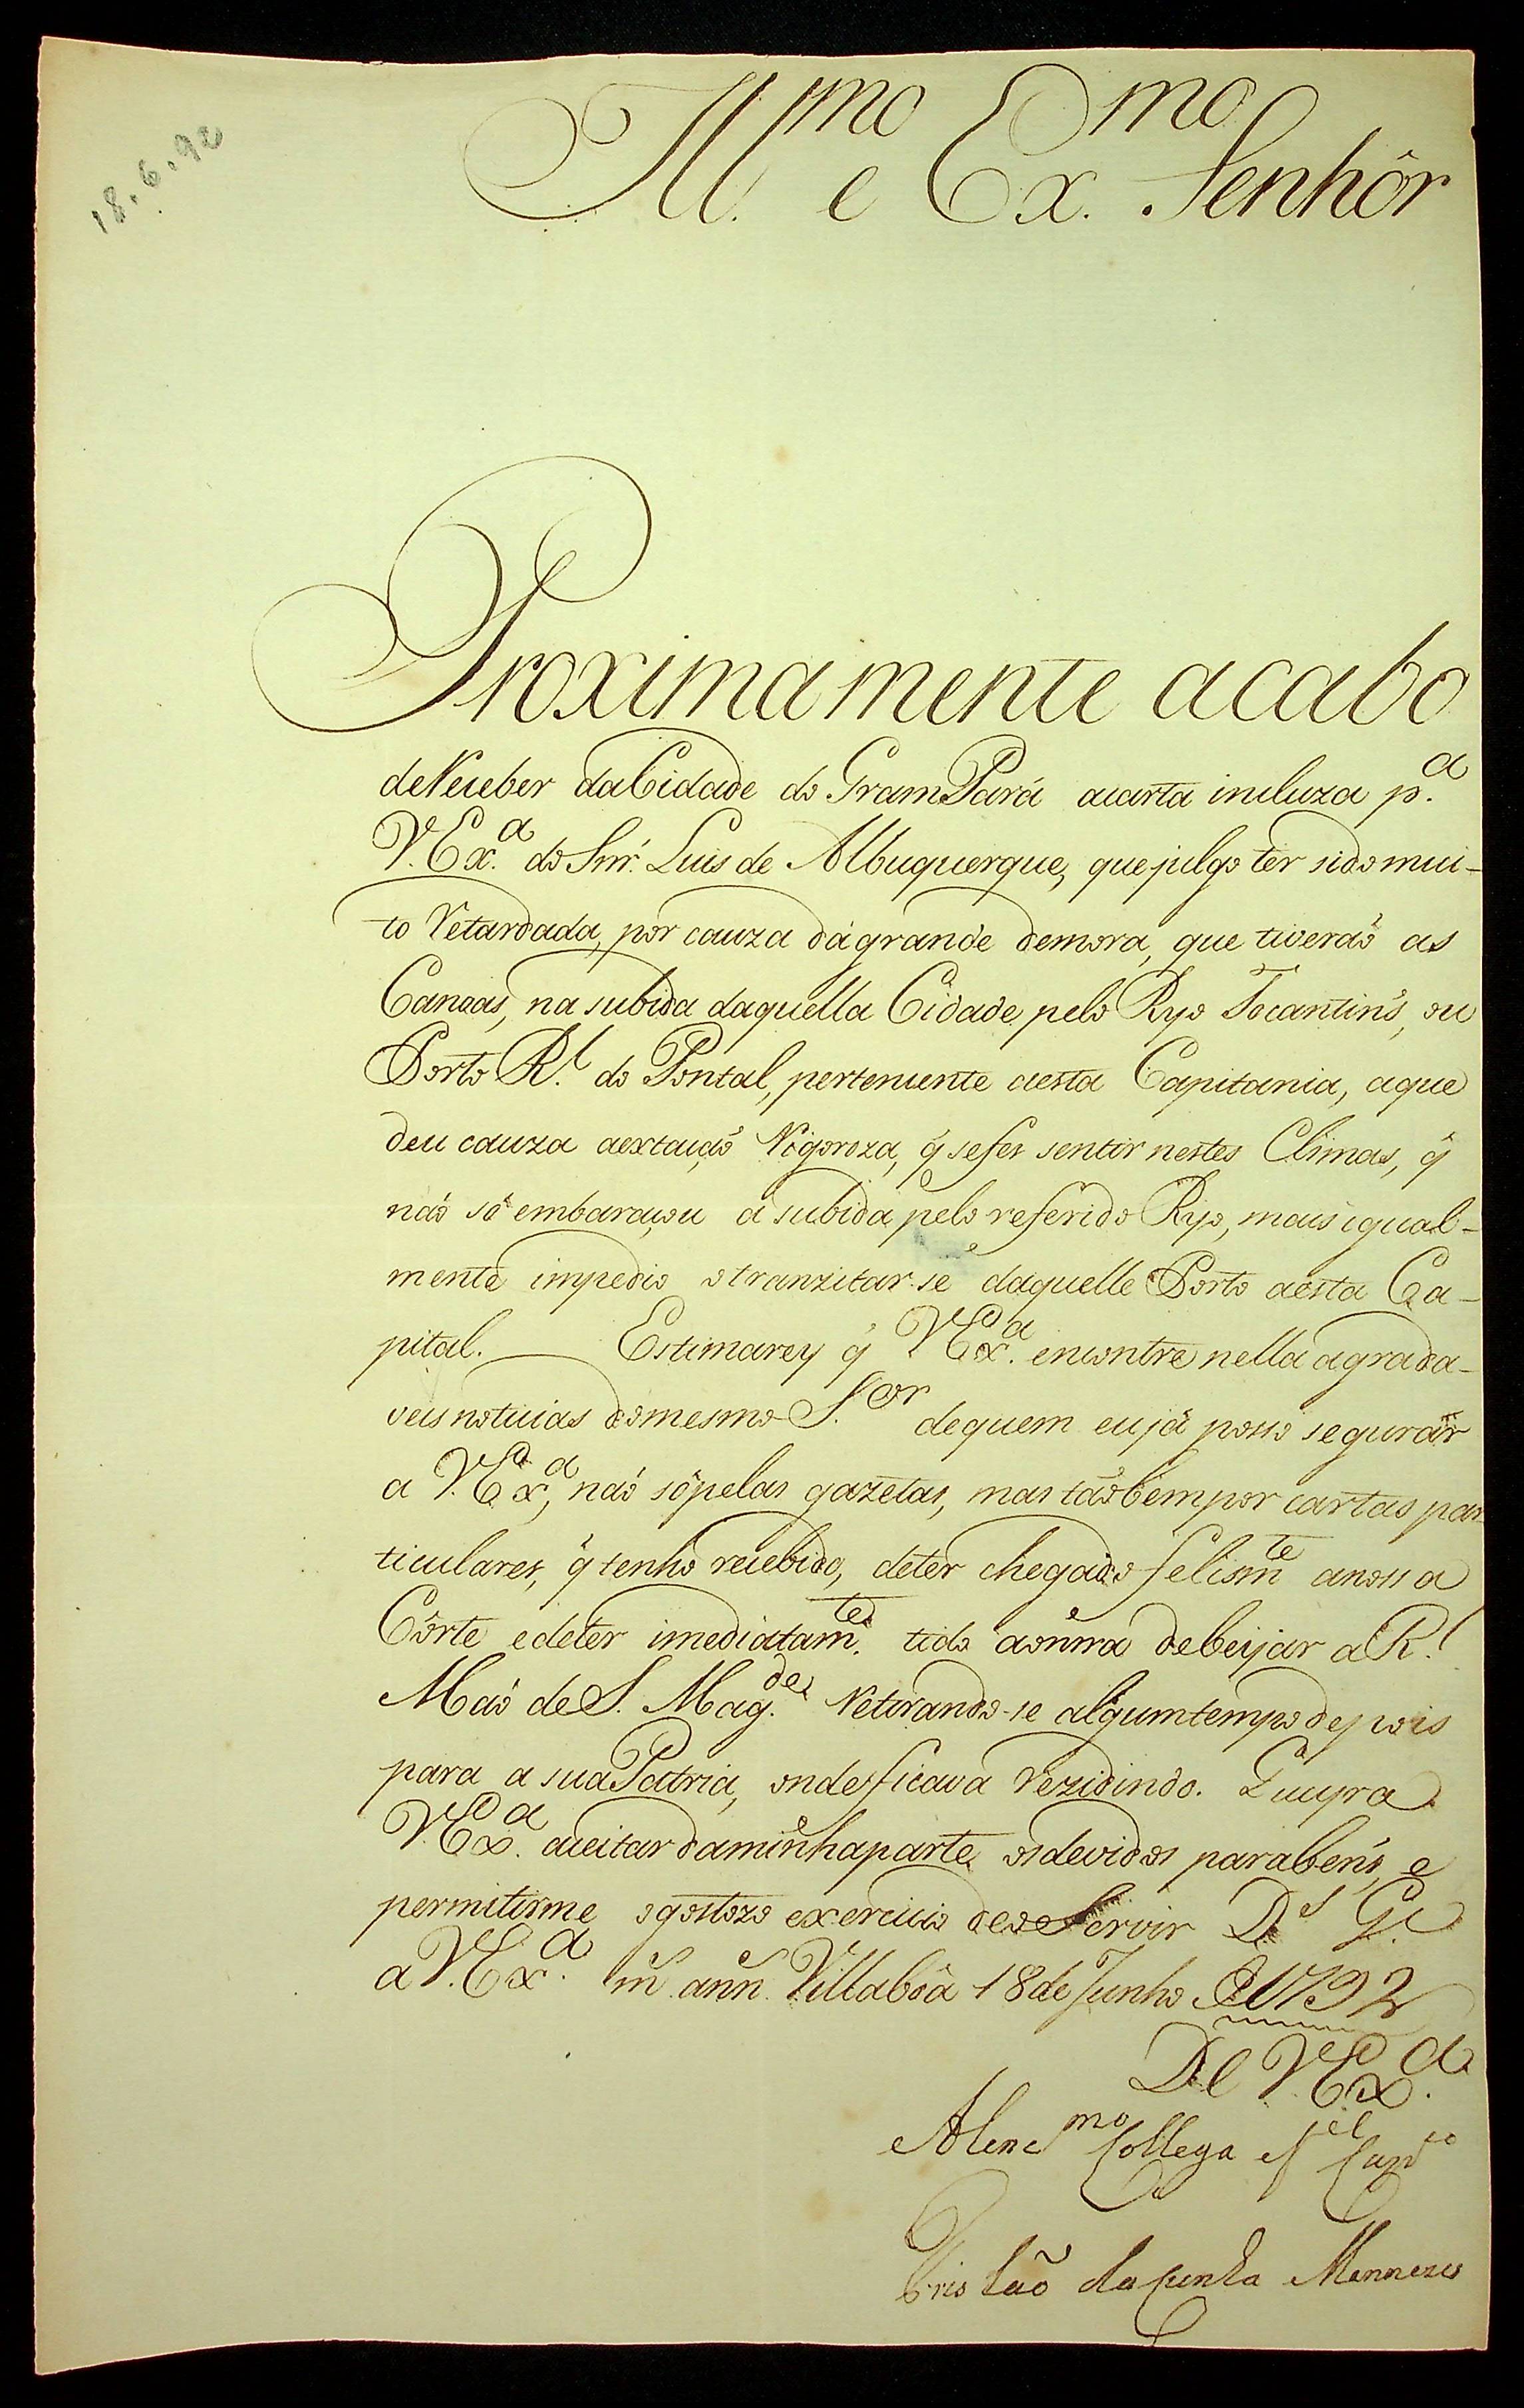 18.6.92
Ill.mo e Ex.mo Senhôr
Proximamente acabo
de Receber da Cidade do Gram Pará a carta incluza p.a
V. Ex.a do Snr. Luis de Albuquerque, que julgo ter sido mui-
to Retardada, por cauza dá grande demora, que tiveraõ as
Canoas, na subida daquella Cidade pelo Ryo Tocantins, ou
Porto R.l do Pontal, pertencente a esta Capitania, a que
deu cauza a extaçaõ Rigoroza, q̃ se fes sentir nestes Climas, q̃
naõ só embaraçou a subida pelo referido Ryo, mais igual-
mente impedio o tranzitar-se daquelle Porto a esta Ca-
pital. Estimarey q̃ V. Ex.a encontre nella agrada-
veis noticias do mesmo S.or de quem eu já posso segurar
a V. Ex.a, naõ só pelas gazetas, mas taõbem por cartas par-
ticulares, q̃ tenho recebido, de ter chegado felism.te a nossa
Côrte e de ter imediatam.te tido a onrra de beijar a R.l
Maõ de S. Mag.de Retirando-se algum tempo depois
para a sua Patria, onde ficava rezidindo. Queyra
V. Ex.a aceitar da minha parte os devidos parabens, e
permitirme o gostozo exercicio de o Servir D.s G.e
a V. Ex.a m.s ann.s Villabôa 18 de Junho de 1792
De V. Ex.a
Atenc.mo Collega e f.el Cap.to
Tristaõ da Cunha Mennezes